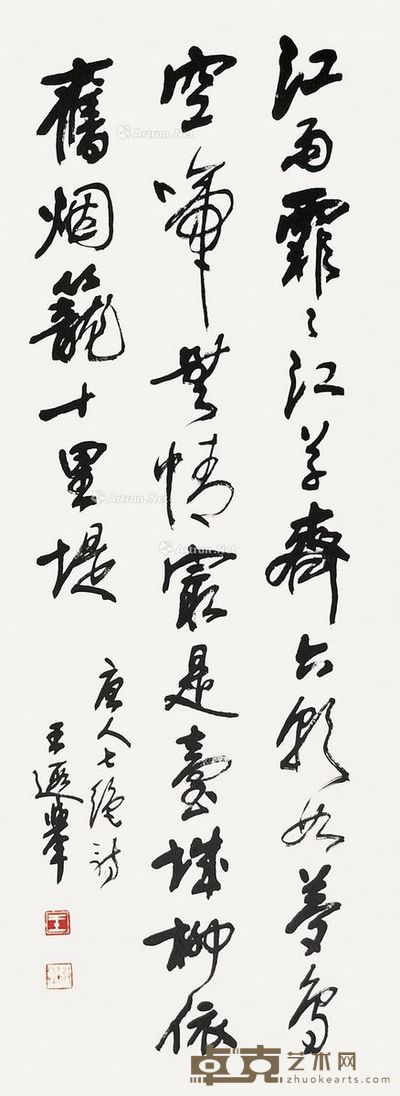 江雨霏〻江草齊六朝如夢鳥
空啼無情最是臺城柳依
舊烟籠十里堤
唐人七絕詩
王遐舉
王
Artron.Net
Artron.Net
Artron.Net
Artron.Net
卓克艺术网
zhuokearts.com